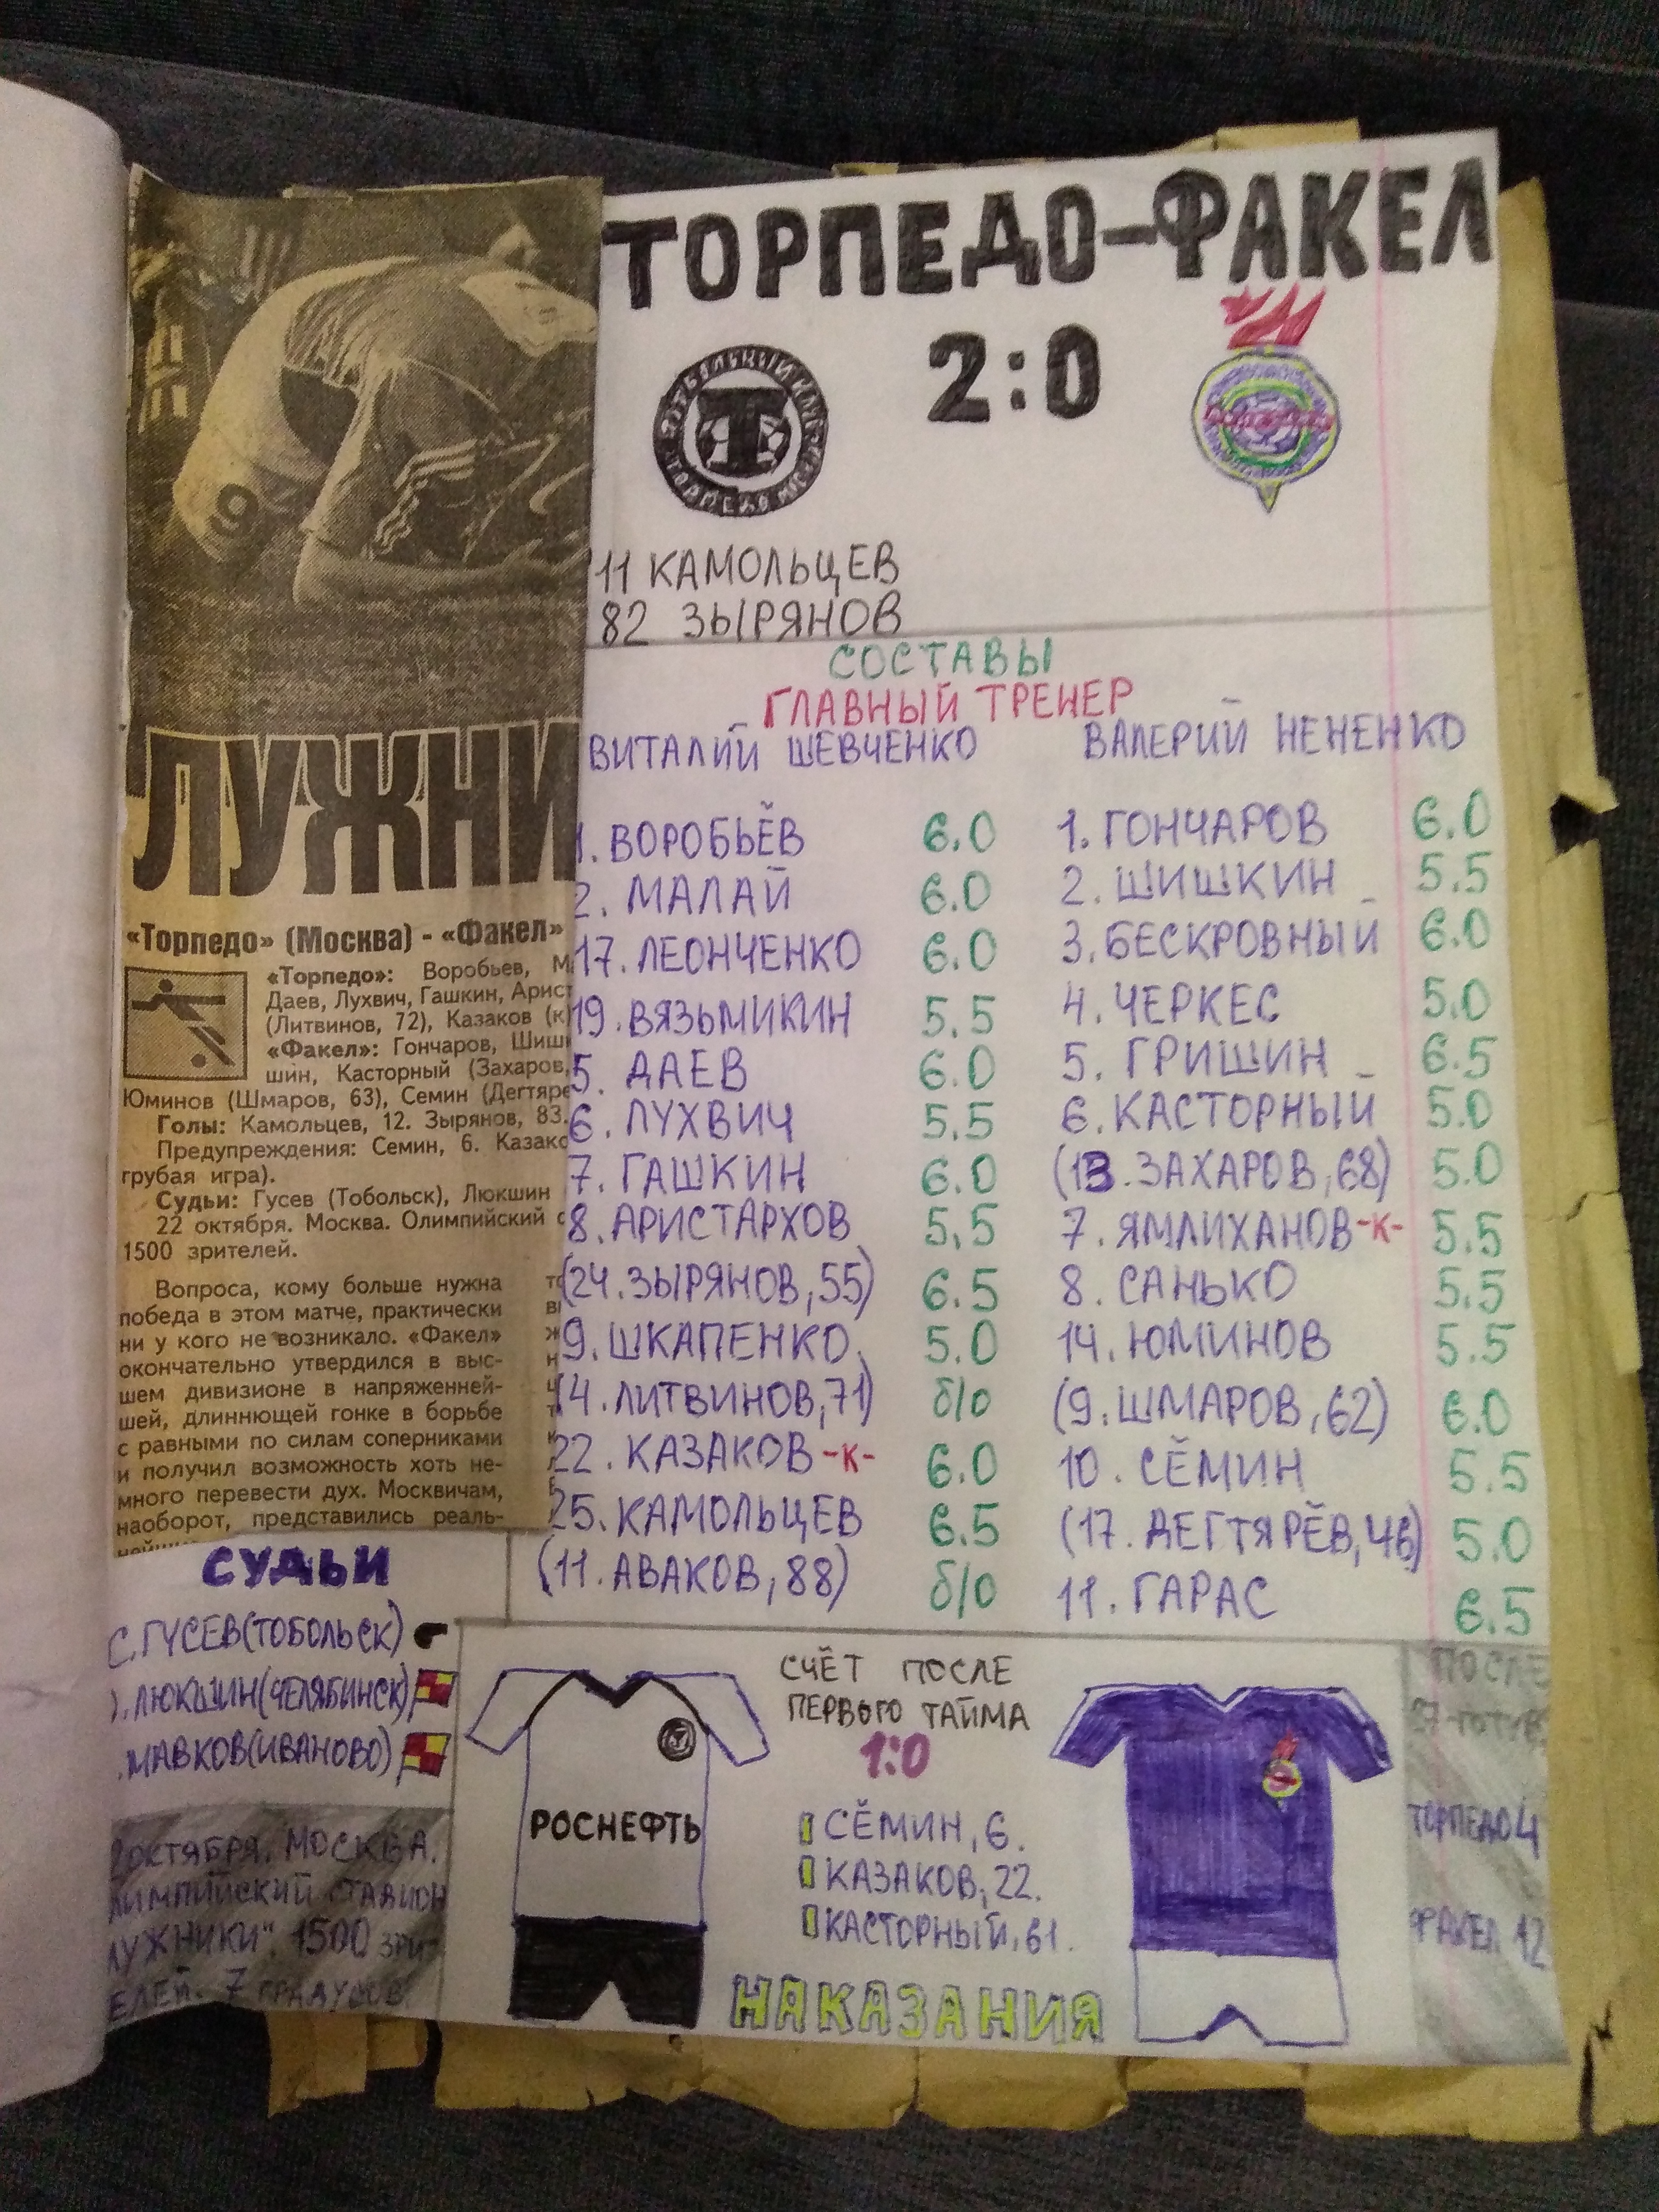 ТОРПЕДО-ФАКЕЛ
2:0
Т
9
11 КАМОЛЬЦЕВ
82 ЗЫРЯНОВ
СОСТАВЫ
ГЛАВНЫЙ ТРЕНЕР
ВИТАЛИЙ ШЕВЧЕНКО
1. ВОРОБЬЁВ 6.0
2. МАЛАЙ 6.0
17. ЛЕОНЧЕНКО 6.0
19. ВЯЗЬМИКИН 5.5
5. ДАЕВ 6.0
6. ЛУХВИЧ 5.5
7. ГАШКИН 6.0
8. АРИСТАРХОВ 5,5
(24. ЗЫРЯНОВ, 55) 6.5
9. ШКАПЕНКО. 5.0
(4. ЛИТВИНОВ, 71) б/о
22. КАЗАКОВ -К- 6.0
25. КАМОЛЬЦЕВ 6.5
(11. АВАКОВ, 88) б/о
ВАЛЕРИЙ НЕНЕНКО
1. ГОНЧАРОВ 6.0
2. ШИШКИН 5.5
3. БЕСКРОВНЫЙ 6.0
4. ЧЕРКЕС 5.0
5. ГРИШИН 6.5
6. КАСТОРНЫЙ 5.0
(13. ЗАХАРОВ, 68) 5.0
7. ЯМЛИХАНОВ -К- 5.5
8. САНЬКО 5.5
14. ЮМИНОВ 5.5
(9. ШМАРОВ, 62) 6.0
10. СЁМИН 5.5
(17. ДЕГТЯРЁВ, 46) 5.0
11. ГАРАС 6.5
ЛУЖНИ
«Торпедо» (Москва) - «Факел»
«Торпедо»: Воробьев, М
Даев, Лухвич, Гашкин, Арист
(Литвинов, 72), Казаков (к)
«Факел»: Гончаров, Шиш
шин, Касторный (Захаров,
Юминов (Шмаров, 63), Семин (Дегтяре
Голы: Камольцев, 12. Зырянов, 83.
Предупреждения: Семин, 6. Казако
грубая игра).
Судьи: Гусев (Тобольск), Люкшин
22 октября. Москва. Олимпийский с
1500 зрителей.
Вопроса, кому больше нужна
победа в этом матче, практически
ни у кого не возникало. «Факел»
окончательно утвердился в выс-
шем дивизионе в напряженней-
шей, длиннющей гонке в борьбе
с равными по силам соперниками
и получил возможность хоть не-
много перевести дух. Москвичам,
наоборот, представились реаль-
СУДЬИ
С. ГУСЕВ (ТОБОЛЬСК)
. ЛЮКШИН (ЧЕЛЯБИНСК)
. МАВКОВ (ИВАНОВО)
2 ОКТЯБРЯ. МОСКВА.
ЛИМПИЙСКИЙ СТАДИОН
ЛУЖНИКИ". 1500 ЗРИ-
ЕЛЕЙ. 7 ГРАДУСОВ.
РОСНЕФТЬ
СЧЁТ ПОСЛЕ
ПЕРВОГО ТАЙМА
1:0
СЁМИН, 6.
КАЗАКОВ, 22.
КАСТОРНЫЙ, 61.
НАКАЗАНИЯ
ПОСЛЕ
ТОРПЕДО 4
ФАКЕЛ 12